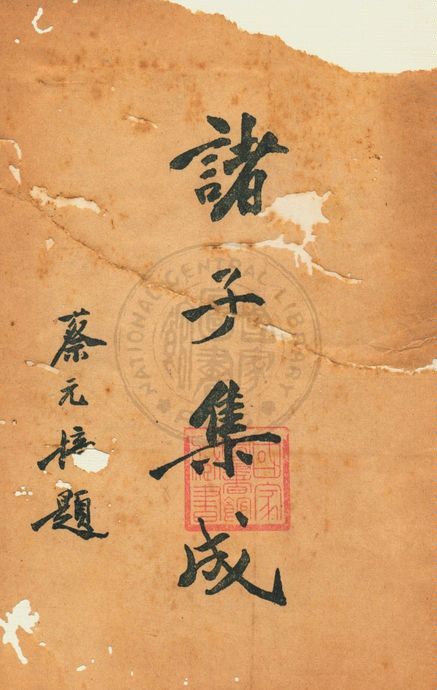 諸子集成
蔡元培題
NATIONAL CENTRAL LIBRARY
國家圖書館藏書